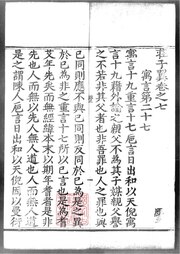 莊子卷之七
寓言第二十七
寓言十九重言十七巵言日出和以天倪寓
言十九藉外論之親父不為其子媒親父譽
之不若非其父者也非吾罪也人之罪也與
己同則應不與己同則反同於己為是之異
於己為非之重言十七所以已言也是為耆
艾年先矣而無經緯本末以期年耆者是非
先也人而無以先人無人道也人而無人道
是之謂陳人巵言日出和以天倪因以曼衍